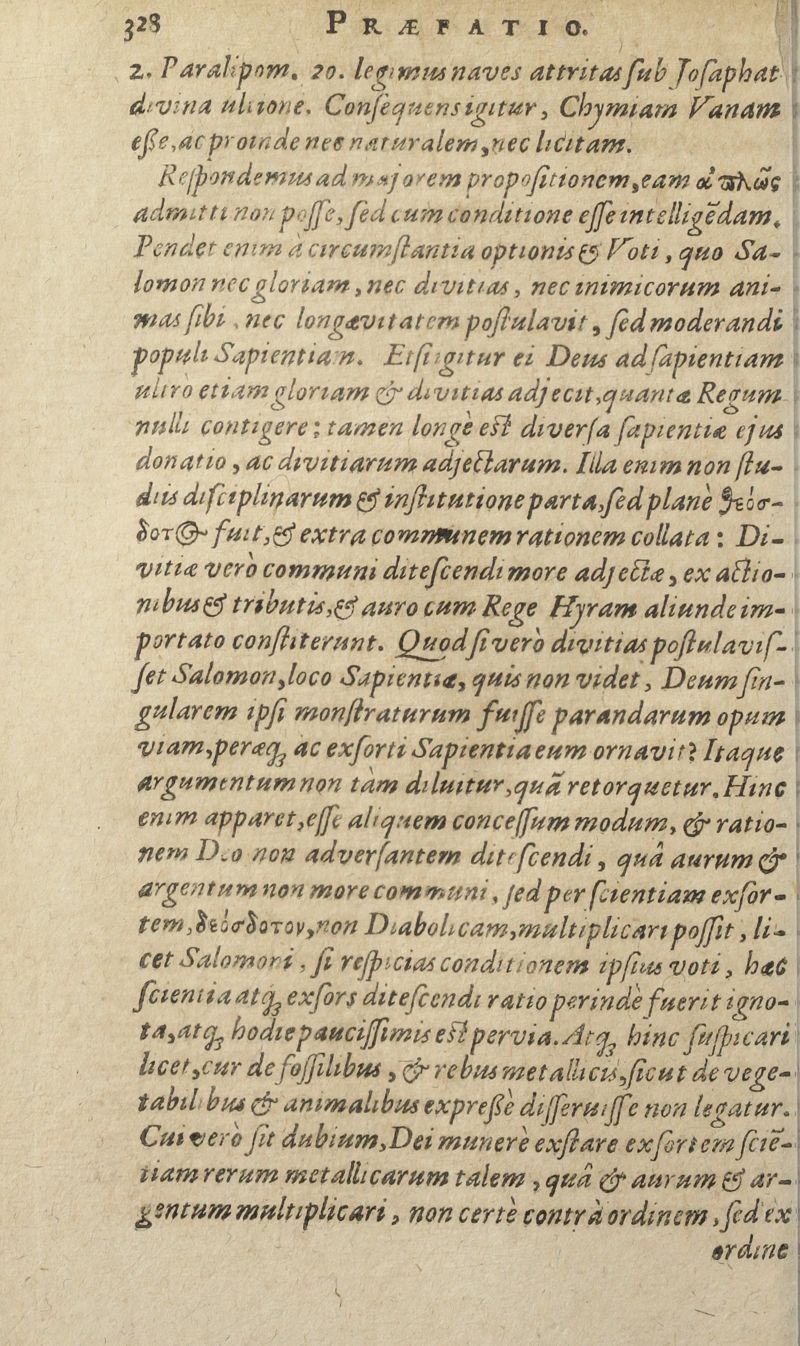 328 PRÆFATIO.
2. Paralipom. 20. legimus naves attritas sub Josaphat
divina ultione. Consequens igitur, Chymiam Vanam
eſſe, ac proinde nec naturalem, nec licitam.
Reſpondemus ad majorem propoſitionem, eam ἁπλῶς
admitti non poſſe, ſed cum conditione eſſe intelligẽdam.
Pendet enim à circumſtantia optionis & Voti, quo Sa-
lomon nec gloriam, nec divitias, nec inimicorum ani-
mas ſibi, nec longævitatem poſtulavit, ſed moderandi
populi Sapientiam. Et ſi igitur ei Deus ad ſapientiam
ultro etiam gloriam & divitias adjecit, quanta Regum
nulli contigere; tamen longè eſt diverſa ſapientiæ ejus
donatio, ac divitiarum adjectarum. Illa enim non ſtu-
diis diſciplinarum & inſtitutione parta, ſed planè θεόσ-
δοτος fuit, & extra communem rationem collata: Di-
vitiæ verò communi diteſcendi more adjectæ, ex actio-
nibus & tributis, & auro cum Rege Hyram aliunde im-
portato conſtiterunt. Quod ſi verò divitias poſtulaviſ-
ſet Salomon, loco Sapientiæ, quis non videt, Deum ſin-
gularem ipſi monſtraturum fuiſſe parandarum opum
viam, peræq; ac exſorti Sapientia eum ornavit? Itaque
argumentum non tàm diluitur, quã retorquetur. Hinc
enim apparet, eſſe aliquem conceſſum modum, & ratio-
nem Deo non adverſantem diteſcendi, quâ aurum &
argentum non more communi, ſed per ſcientiam exſor-
tem, θεόσδοτον, non Diabolicam, multiplicari poſſit, li-
cet Salomoni, ſi reſpicias conditionem ipſius voti, hæc
ſcientia atq; exſors diteſcendi ratio perindè fuerit igno-
ta, atq; hodie pauciſſimis eſt pervia. Atq; hinc ſuſpicari
licet, cur de foſſilibus, & rebus metallicis, ſicut de vege-
tabilibus & animalibus expreſſè diſſeruiſſe non legatur.
Cui verò ſit dubium, Dei munerè exſtare exſortem ſciẽ-
tiam rerum metallicarum talem, quâ & aurum & ar-
gentum multiplicari, non certè contrà ordinem, ſed ex
ordine